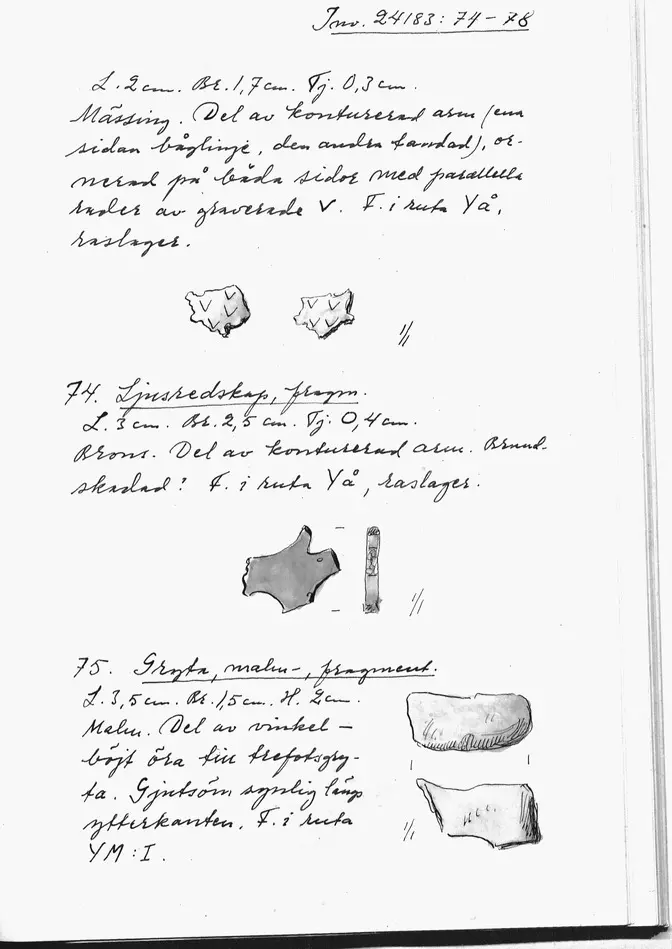 Inv. 24183: 74-78
L. 2 cm. Br. 1,7 cm. Tj. 0,3 cm.
Mässing. Del av konturerad arm (ena
sidan båglinje, den andra tandad), or-
nerad på båda sidor med parallella
rader av graverade V. F. i ruta YÅ,
raslager.
1/1
74. Ljusredskap, fragm.
L. 3 cm. Br. 2,5 cm. Tj. 0,4 cm.
Brons. Del av konturerad arm. Brand-
skadad? F. i ruta YÅ, raslager.
1/1
75. Gryta, malm-, fragment.
L. 3,5 cm. Br. 1,5 cm. H. 2 cm.
Malm. Del av vinkel-
böjt öra till trefotsgry-
ta. Gjutsöm synlig längs
ytterkanten. F. i ruta
YM: I.
1/1